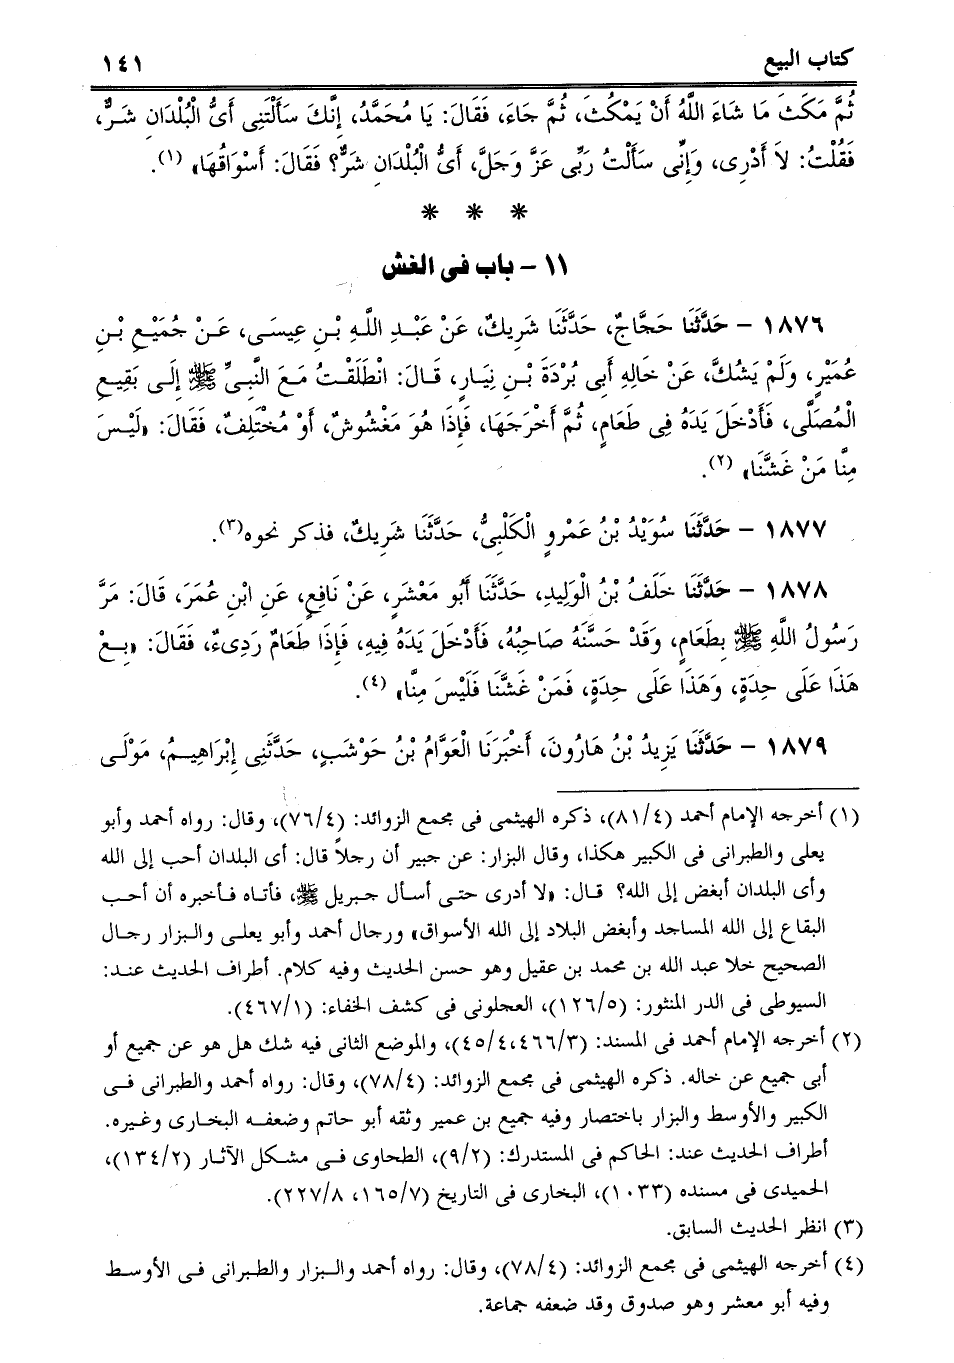 كتاب البيع ١٤١
ثُمَّ مَكَثَ مَا شَاءَ اللَّهُ أَنْ يَمْكُثَ، ثُمَّ جَاءَ، فَقَالَ: يَا مُحَمَّدُ، إِنَّكَ سَأَلْتَنِى أَىُّ الْبُلْدَانِ شَرٌّ،
فَقُلْتُ: لاَ أَدْرِى، وَإِنِّى سَأَلْتُ رَبِّى عَزَّ وَجَلَّ، أَىُّ الْبُلْدَانِ شَرٌّ؟ فَقَالَ: أَسْوَاقُهَا» (١).
* * *
١١ - باب فى الغش
١٨٧٦ - حَدَّثَنَا حَجَّاجٌ، حَدَّثَنَا شَرِيكٌ، عَنْ عَبْدِ اللَّهِ بْنِ عِيسَى، عَنْ جُمَيْعِ بْنِ
عُمَيْرٍ، وَلَمْ يَشُكَّ، عَنْ خَالِهِ أَبِى بُرْدَةَ بْنِ نِيَارٍ، قَالَ: انْطَلَقْتُ مَعَ النَّبِىِّ ﷺ إِلَى بَقِيعِ
الْمُصَلَّى، فَأَدْخَلَ يَدَهُ فِى طَعَامٍ، ثُمَّ أَخْرَجَهَا، فَإِذَا هُوَ مَغْشُوشٌ، أَوْ مُخْتَلِفٌ، فَقَالَ: «لَيْسَ
مِنَّا مَنْ غَشَّنَا» (٢).
١٨٧٧ - حَدَّثَنَا سُوَيْدُ بْنُ عَمْرٍو الْكَلْبِىُّ، حَدَّثَنَا شَرِيكٌ، فذكر نحوه(٣).
١٨٧٨ - حَدَّثَنَا خَلَفُ بْنُ الْوَلِيدِ، حَدَّثَنَا أَبُو مَعْشَرٍ، عَنْ نَافِعٍ، عَنِ ابْنِ عُمَرَ، قَالَ: مَرَّ
رَسُولُ اللَّهِ ﷺ بِطَعَامٍ، وَقَدْ حَسَّنَهُ صَاحِبُهُ، فَأَدْخَلَ يَدَهُ فِيهِ، فَإِذَا طَعَامٌ رَدِىءٌ، فَقَالَ: «بِعْ
هَذَا عَلَى حِدَةٍ، وَهَذَا عَلَى حِدَةٍ، فَمَنْ غَشَّنَا فَلَيْسَ مِنَّا» (٤).
١٨٧٩ - حَدَّثَنَا يَزِيدُ بْنُ هَارُونَ، أَخْبَرَنَا الْعَوَّامُ بْنُ حَوْشَبٍ، حَدَّثَنِى إِبْرَاهِيمُ، مَوْلَى
(١) أخرجه الإمام أحمد (٨١/٤)، ذكره الهيثمى فى مجمع الزوائد: (٧٦/٤)، وقال: رواه أحمد وأبو
يعلى والطبرانى فى الكبير هكذا، وقال البزار: عن جبير أن رجلاً قال: أى البلدان أحب إلى الله
وأى البلدان أبغض إلى الله؟ قال: «لا أدرى حتى أسأل جبريل ﷺ، فأتاه فأخبره أن أحب
البقاع إلى الله المساجد وأبغض البلاد إلى الله الأسواق» ورجال أحمد وأبو يعلى والبزار رجال
الصحيح خلا عبد الله بن محمد بن عقيل وهو حسن الحديث وفيه كلام. أطراف الحديث عند:
السيوطى فى الدر المنثور: (١٢٦/٥)، العجلونى فى كشف الخفاء: (٤٦٧/١).
(٢) أخرجه الإمام أحمد فى المسند: (٤٥/٤،٤٦٦/٣)، والموضع الثانى فيه شك هل هو عن جميع أو
أبى جميع عن خاله. ذكره الهيثمى فى مجمع الزوائد: (٧٨/٤)، وقال: رواه أحمد والطبرانى فى
الكبير والأوسط والبزار باختصار وفيه جميع بن عمير وثقه أبو حاتم وضعفه البخارى وغيره.
أطراف الحديث عند: الحاكم فى المستدرك: (٩/٢)، الطحاوى فى مشكل الآثار (١٣٤/٢)،
الحميدى فى مسنده (١٠٣٣)، البخارى فى التاريخ (١٦٥/٧، ٢٢٧/٨).
(٣) انظر الحديث السابق.
(٤) أخرجه الهيثمى فى مجمع الزوائد: (٧٨/٤)، وقال: رواه أحمد والبزار والطبرانى فى الأوسط
وفيه أبو معشر وهو صدوق وقد ضعفه جماعة.